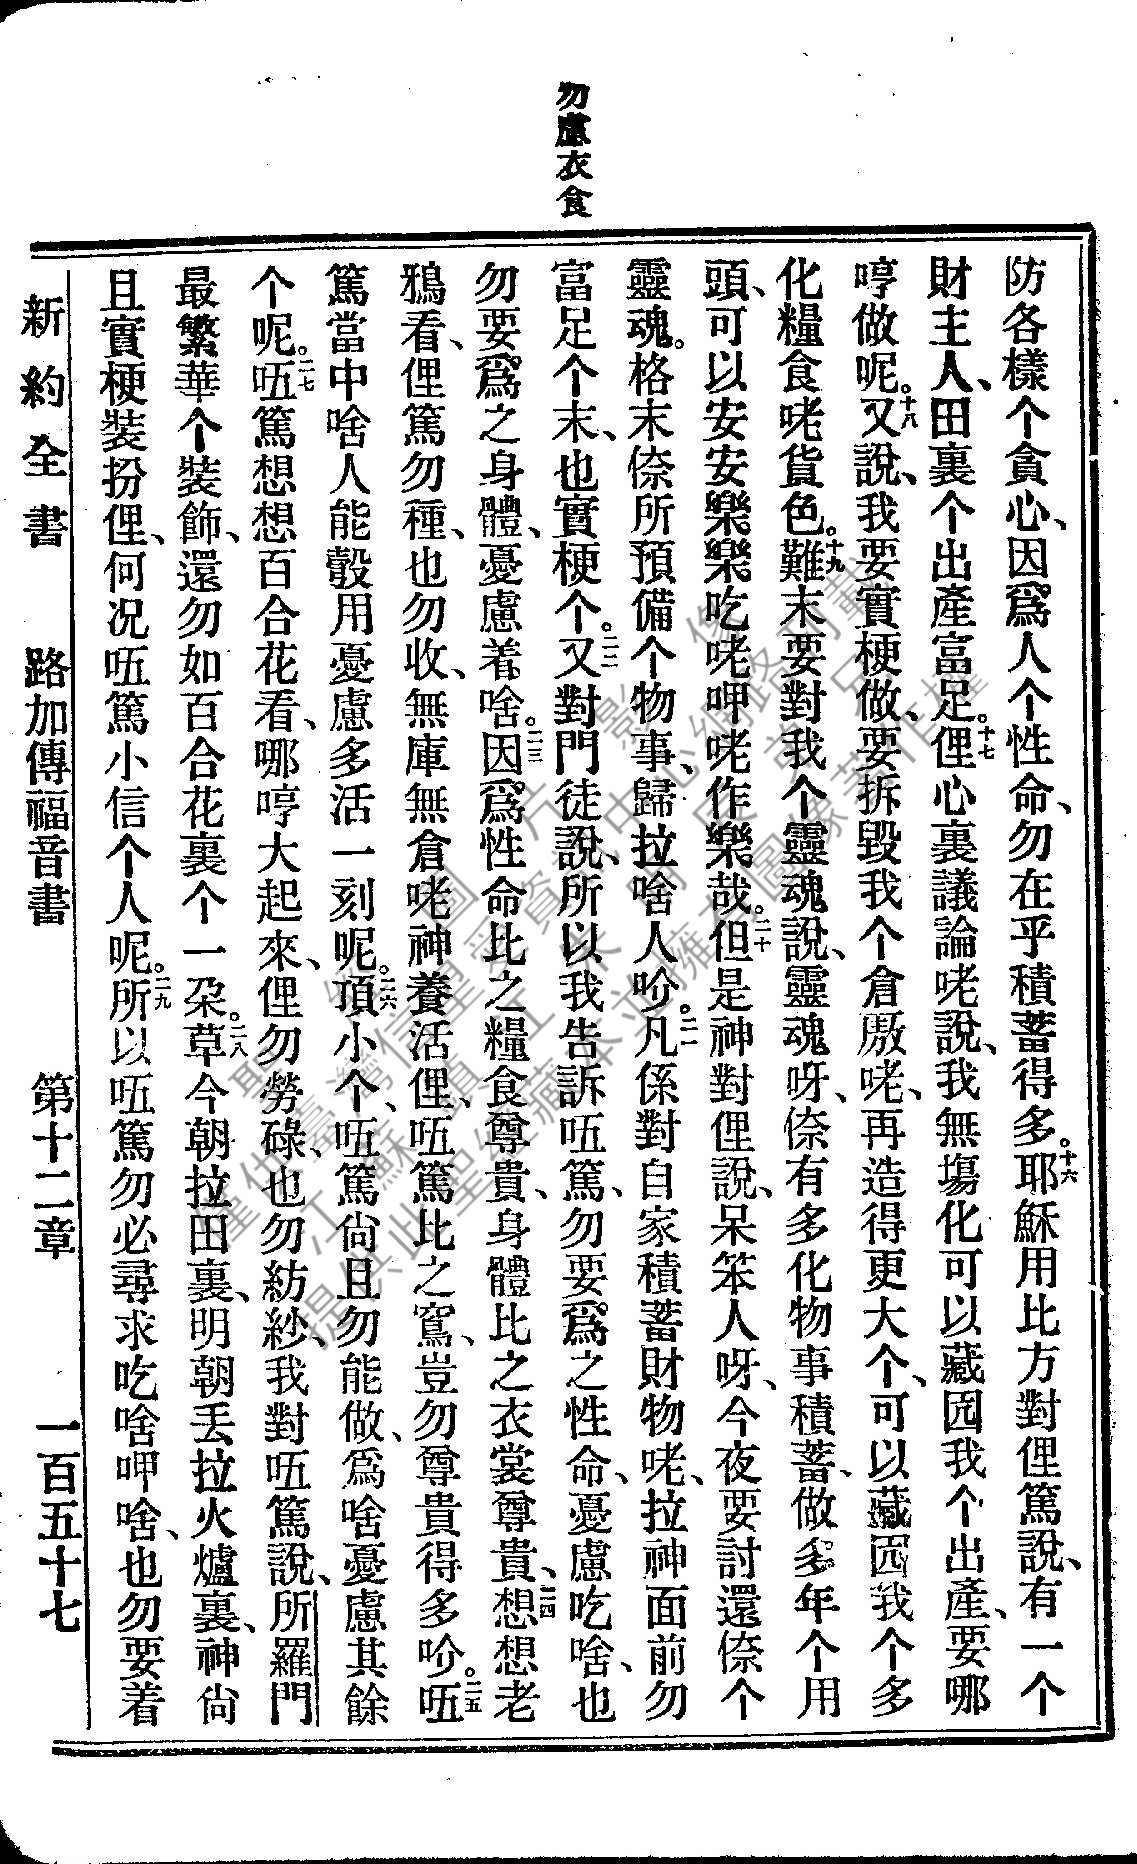 勿慮衣食
防各樣个貪心、因爲人个性命、勿在乎積蓄得多。十六耶穌用比方對俚篤說、有一个
財主人、田裏个出產富足。十七俚心裏議論咾說、我無塲化可以藏囥我个出產、要哪
哼做呢。十八又說、我要實梗做、要拆毀我个倉厫咾、再造得更大个、可以藏囥我个多
化糧食咾貨色。十九難末要對我个靈魂說、靈魂呀、倷有多化物事積蓄、做多年个用
頭、可以安安樂樂吃咾呷咾作樂哉。二十但是神對俚說、呆笨人呀、今夜要討還倷个
靈魂。格末倷所預備个物事、歸拉啥人吤。二一凡係對自家積蓄財物咾、拉神面前勿
富足个末、也實梗个。二二又對門徒說、所以我告訴㕶篤、勿要爲之性命、憂慮吃啥、也
勿要爲之身體、憂慮着啥。二三因爲性命比之糧食尊貴、身體比之衣裳尊貴、二四想想老
鴉看、俚篤勿種、也勿收、無庫無倉咾神養活俚、㕶篤比之窵、豈勿尊貴得多吤。二五㕶
篤當中啥人能彀用憂慮多活一刻呢。二六頂小个、㕶篤尙且勿能做、爲啥憂慮其餘
个呢。二七㕶篤想想百合花看、哪哼大起來、俚勿勞碌、也勿紡紗、我對㕶篤說、所羅門
最繁華个裝飾、還勿如百合花裏个一朶。二八草今朝拉田裏、明朝丢拉火爐裏、神尙
且實梗裝扮俚、何况㕶篤小信个人呢。二九所以㕶篤勿必尋求吃啥呷啥、也勿要着
新約全書　路加傳福音書　第十二章　一百五十七